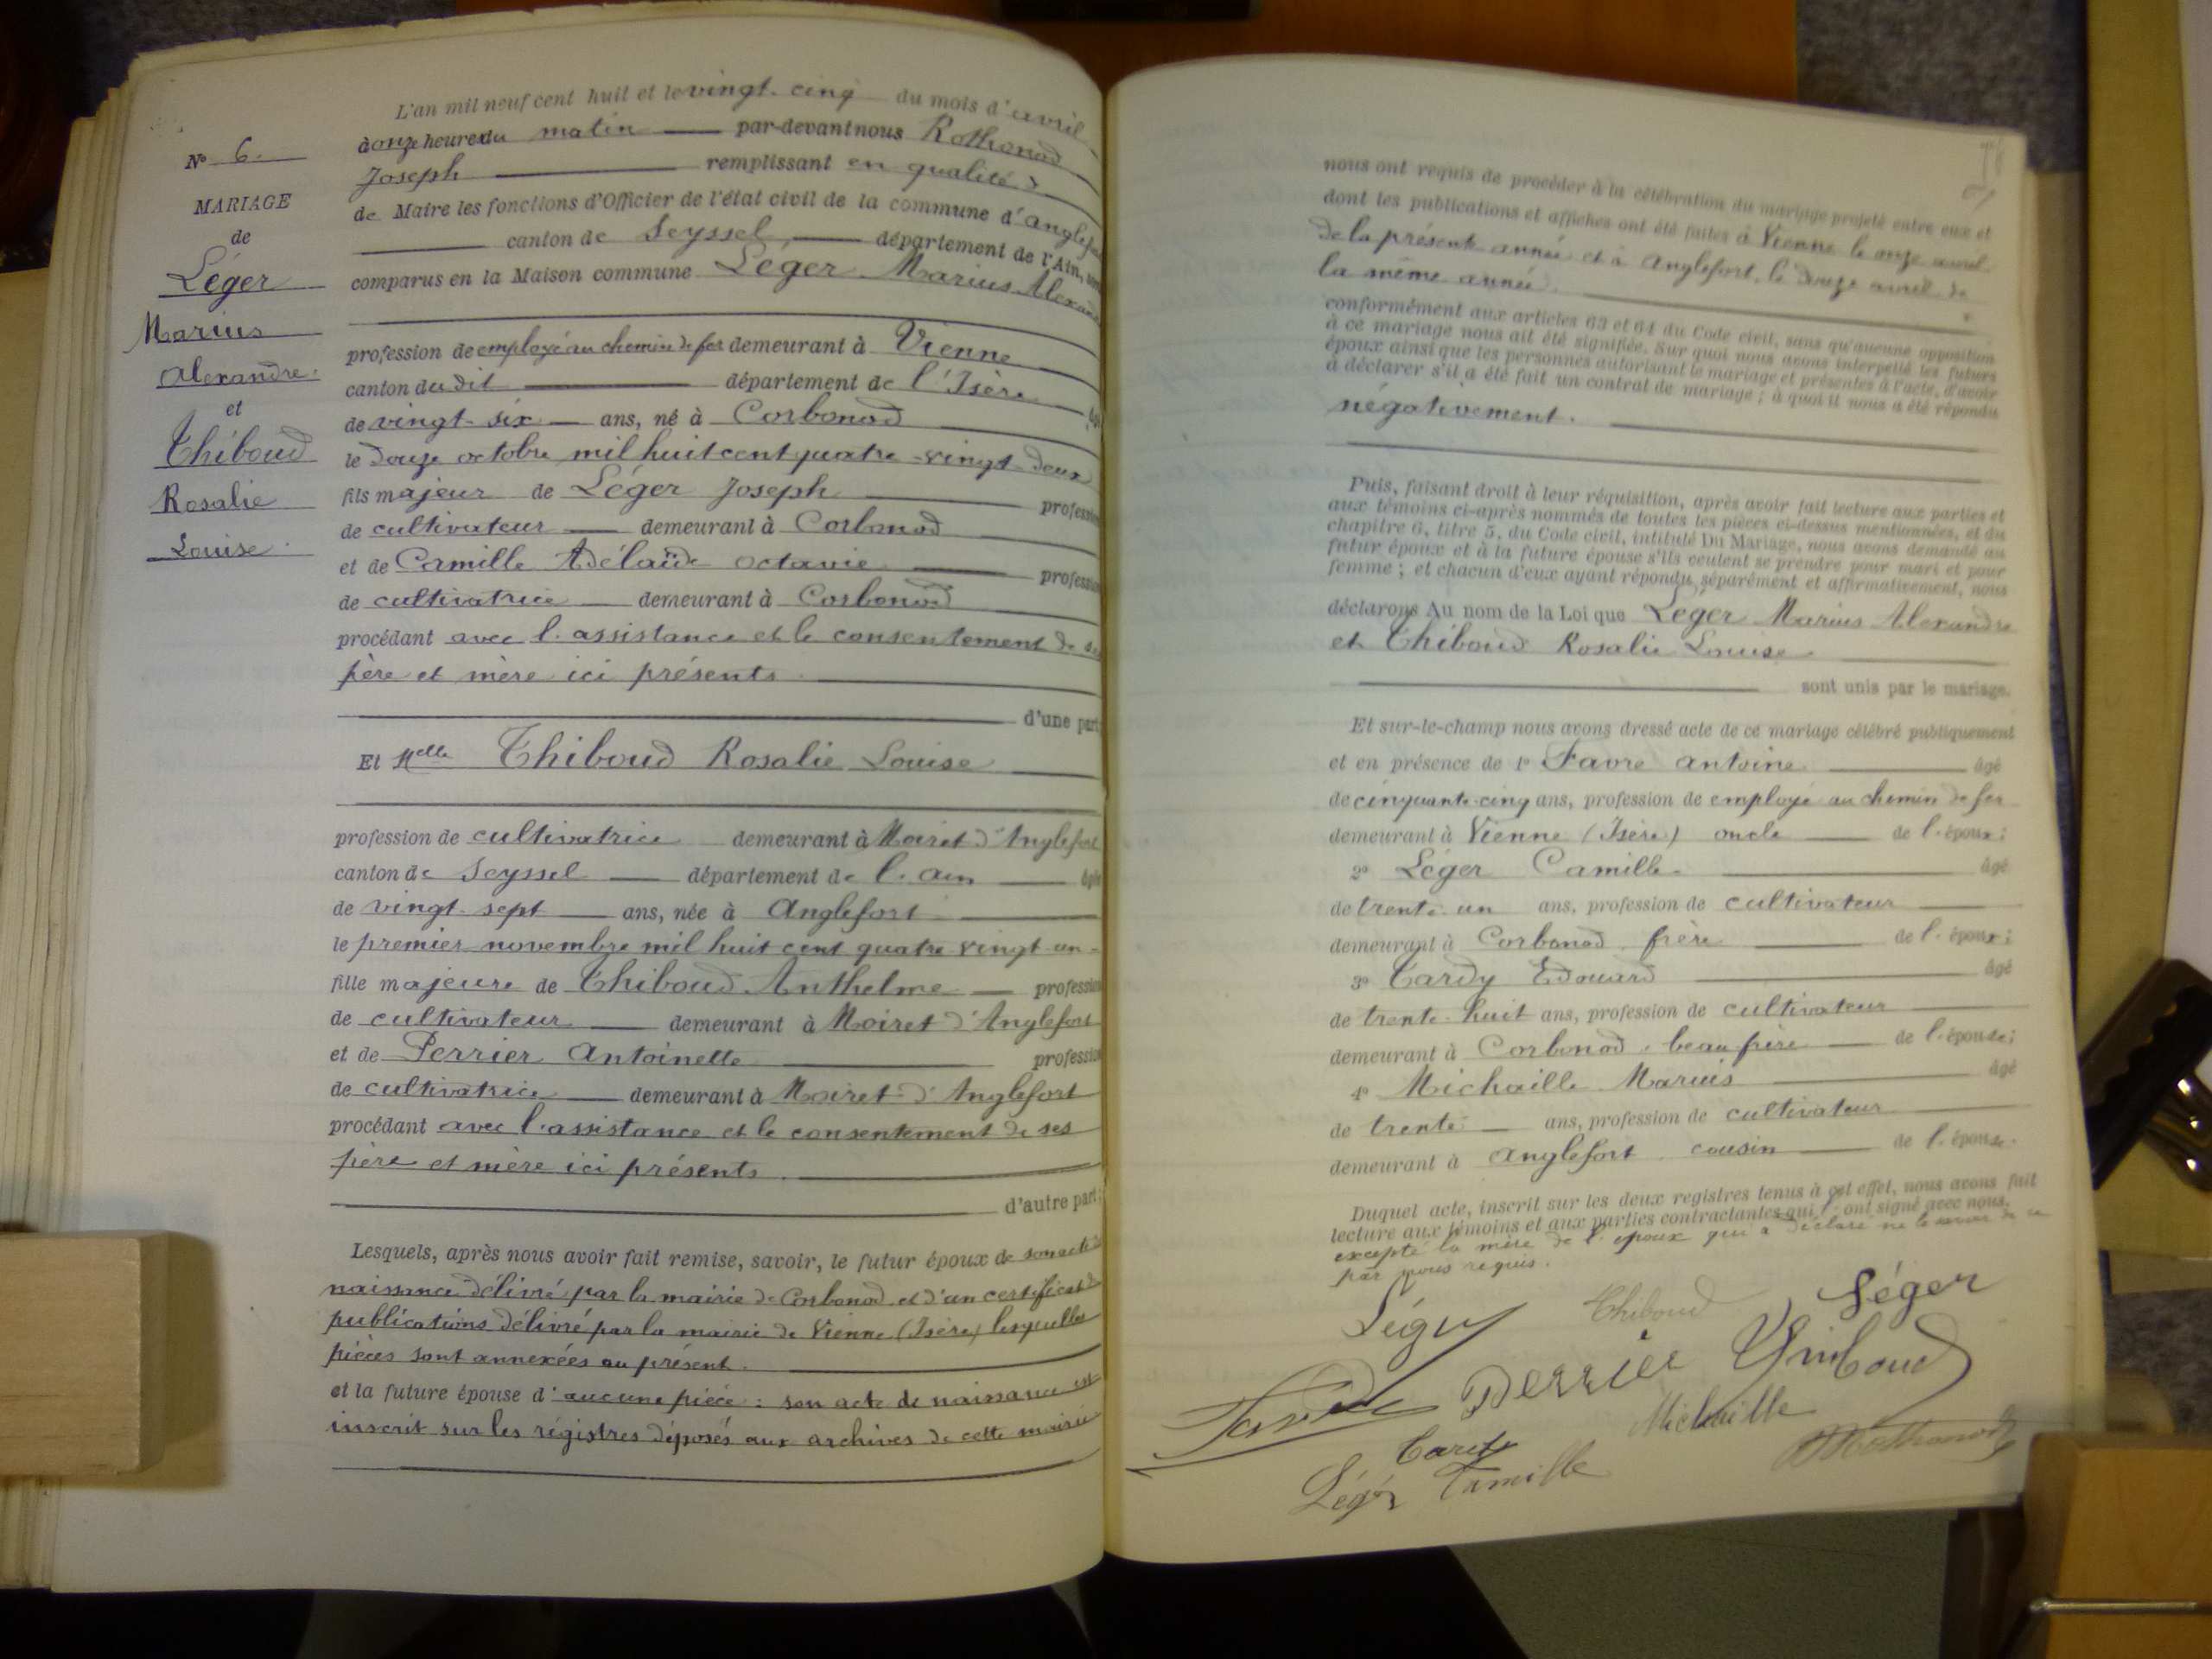 L'an mil neuf cent huit et le vingt-cinq du mois d'avril
à onze heures du matin par-devant nous Rothonod
Joseph remplissant en qualité
de Maire les fonctions d'Officier de l'état civil de la commune d'Anglefort
canton de Seyssel, département de l'Ain, sont
comparus en la Maison commune Léger Marius Alexandre
profession de employé au chemin de fer demeurant à Vienne
canton du dit département de l'Isère âgé
de vingt-six ans, né à Corbonod
le douze octobre mil huit cent quatre-vingt-deux
fils majeur de Léger Joseph profession
de cultivateur demeurant à Corbonod
et de Camille Adélaïde Octavie profession
de cultivatrice demeurant à Corbonod
procédant avec l'assistance et le consentement de ses
père et mère ici présents
d'une part;
Et Melle Thiboud Rosalie Louise
profession de cultivatrice demeurant à Moiret d'Anglefort
canton de Seyssel département de l'ain âgée
de vingt-sept ans, née à Anglefort
le premier novembre mil huit cent quatre vingt un
fille majeure de Thiboud Anthelme profession
de cultivateur demeurant à Moiret d'Anglefort
et de Perrier Antoinette profession
de cultivatrice demeurant à Moiret d'Anglefort
procédant avec l'assistance et le consentement de ses
père et mère ici présents.
d'autre part;
Lesquels, après nous avoir fait remise, savoir, le futur époux de son acte de
naissance délivré par la mairie de Corbonod et d'un certificat de
publications délivré par la mairie de Vienne (Isère) lesquelles
pièces sont annexées au présent.
et la future épouse d'aucune pièce: son acte de naissance est
inscrit sur les régistres déposés aux archives de cette mairie
N° 6.
MARIAGE
de
Léger
Marius
Alexandre.
et
Thiboud
Rosalie
Louise.
nous ont requis de procéder à la célébration du mariage projeté entre eux et
dont les publications et affiches ont été faites à Vienne le onze avril
de la présente année et à Anglefort, le douze avril de
la même année.
conformément aux articles 63 et 64 du Code civil, sans qu'aucune opposition
à ce mariage nous ait été signifiée. Sur quoi nous avons interpellé les futurs
époux ainsi que les personnes autorisant le mariage et présentes à l'acte, d'avoir
à déclarer s'il a été fait un contrat de mariage; à quoi il nous a été répondu
négativement.
Puis, faisant droit à leur réquisition, après avoir fait lecture aux parties et
aux témoins ci-après nommés de toutes les pièces ci-dessus mentionnées, et du
chapitre 6, titre 5, du Code civil, intitulé Du Mariage, nous avons demandé au
futur époux et à la future épouse s'ils veulent se prendre pour mari et pour
femme; et chacun d'eux ayant répondu séparément et affirmativement, nous
déclarons Au nom de la Loi que Léger Marius Alexandre
et Thiboud Rosalie Louise
sont unis par le mariage.
Et sur-le-champ nous avons dressé acte de ce mariage célébré publiquement
et en présence de 1° Favre Antoine âgé
de cinquante-cinq ans, profession de employé au chemin de fer
demeurant à Vienne (Isère) oncle de l'époux;
2° Léger Camille âgé
de trente-un ans, profession de cultivateur
demeurant à Corbonod frère de l'époux;
3° Tardy Edouard âgé
de trente-huit ans, profession de cultivateur
demeurant à Corbonod, beau frère de l'épouse;
4° Michaille Marius âgé
de trente ans, profession de cultivateur
demeurant à Anglefort cousin de l'épouse.
Duquel acte, inscrit sur les deux registres tenus à cet effet, nous avons fait
lecture aux témoins et aux parties contractantes qui l'ont signé avec nous,
excepté la mère de l'époux qui a déclaré ne le savoir de ce
par nous requis.
Léger Thiboud Léger
Perrier Thiboud
Michaille
Tardy
Léger Camille Rothonod